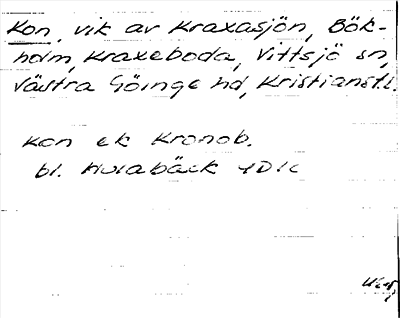 Kon, vik av Kraxasjön, Bök-
holm, Kraxeboda, Vittsjö sn,
Västra Göinge hd, Kristianst.l.
Kon ek Kronob.
bl. Hurabäck 4D1c